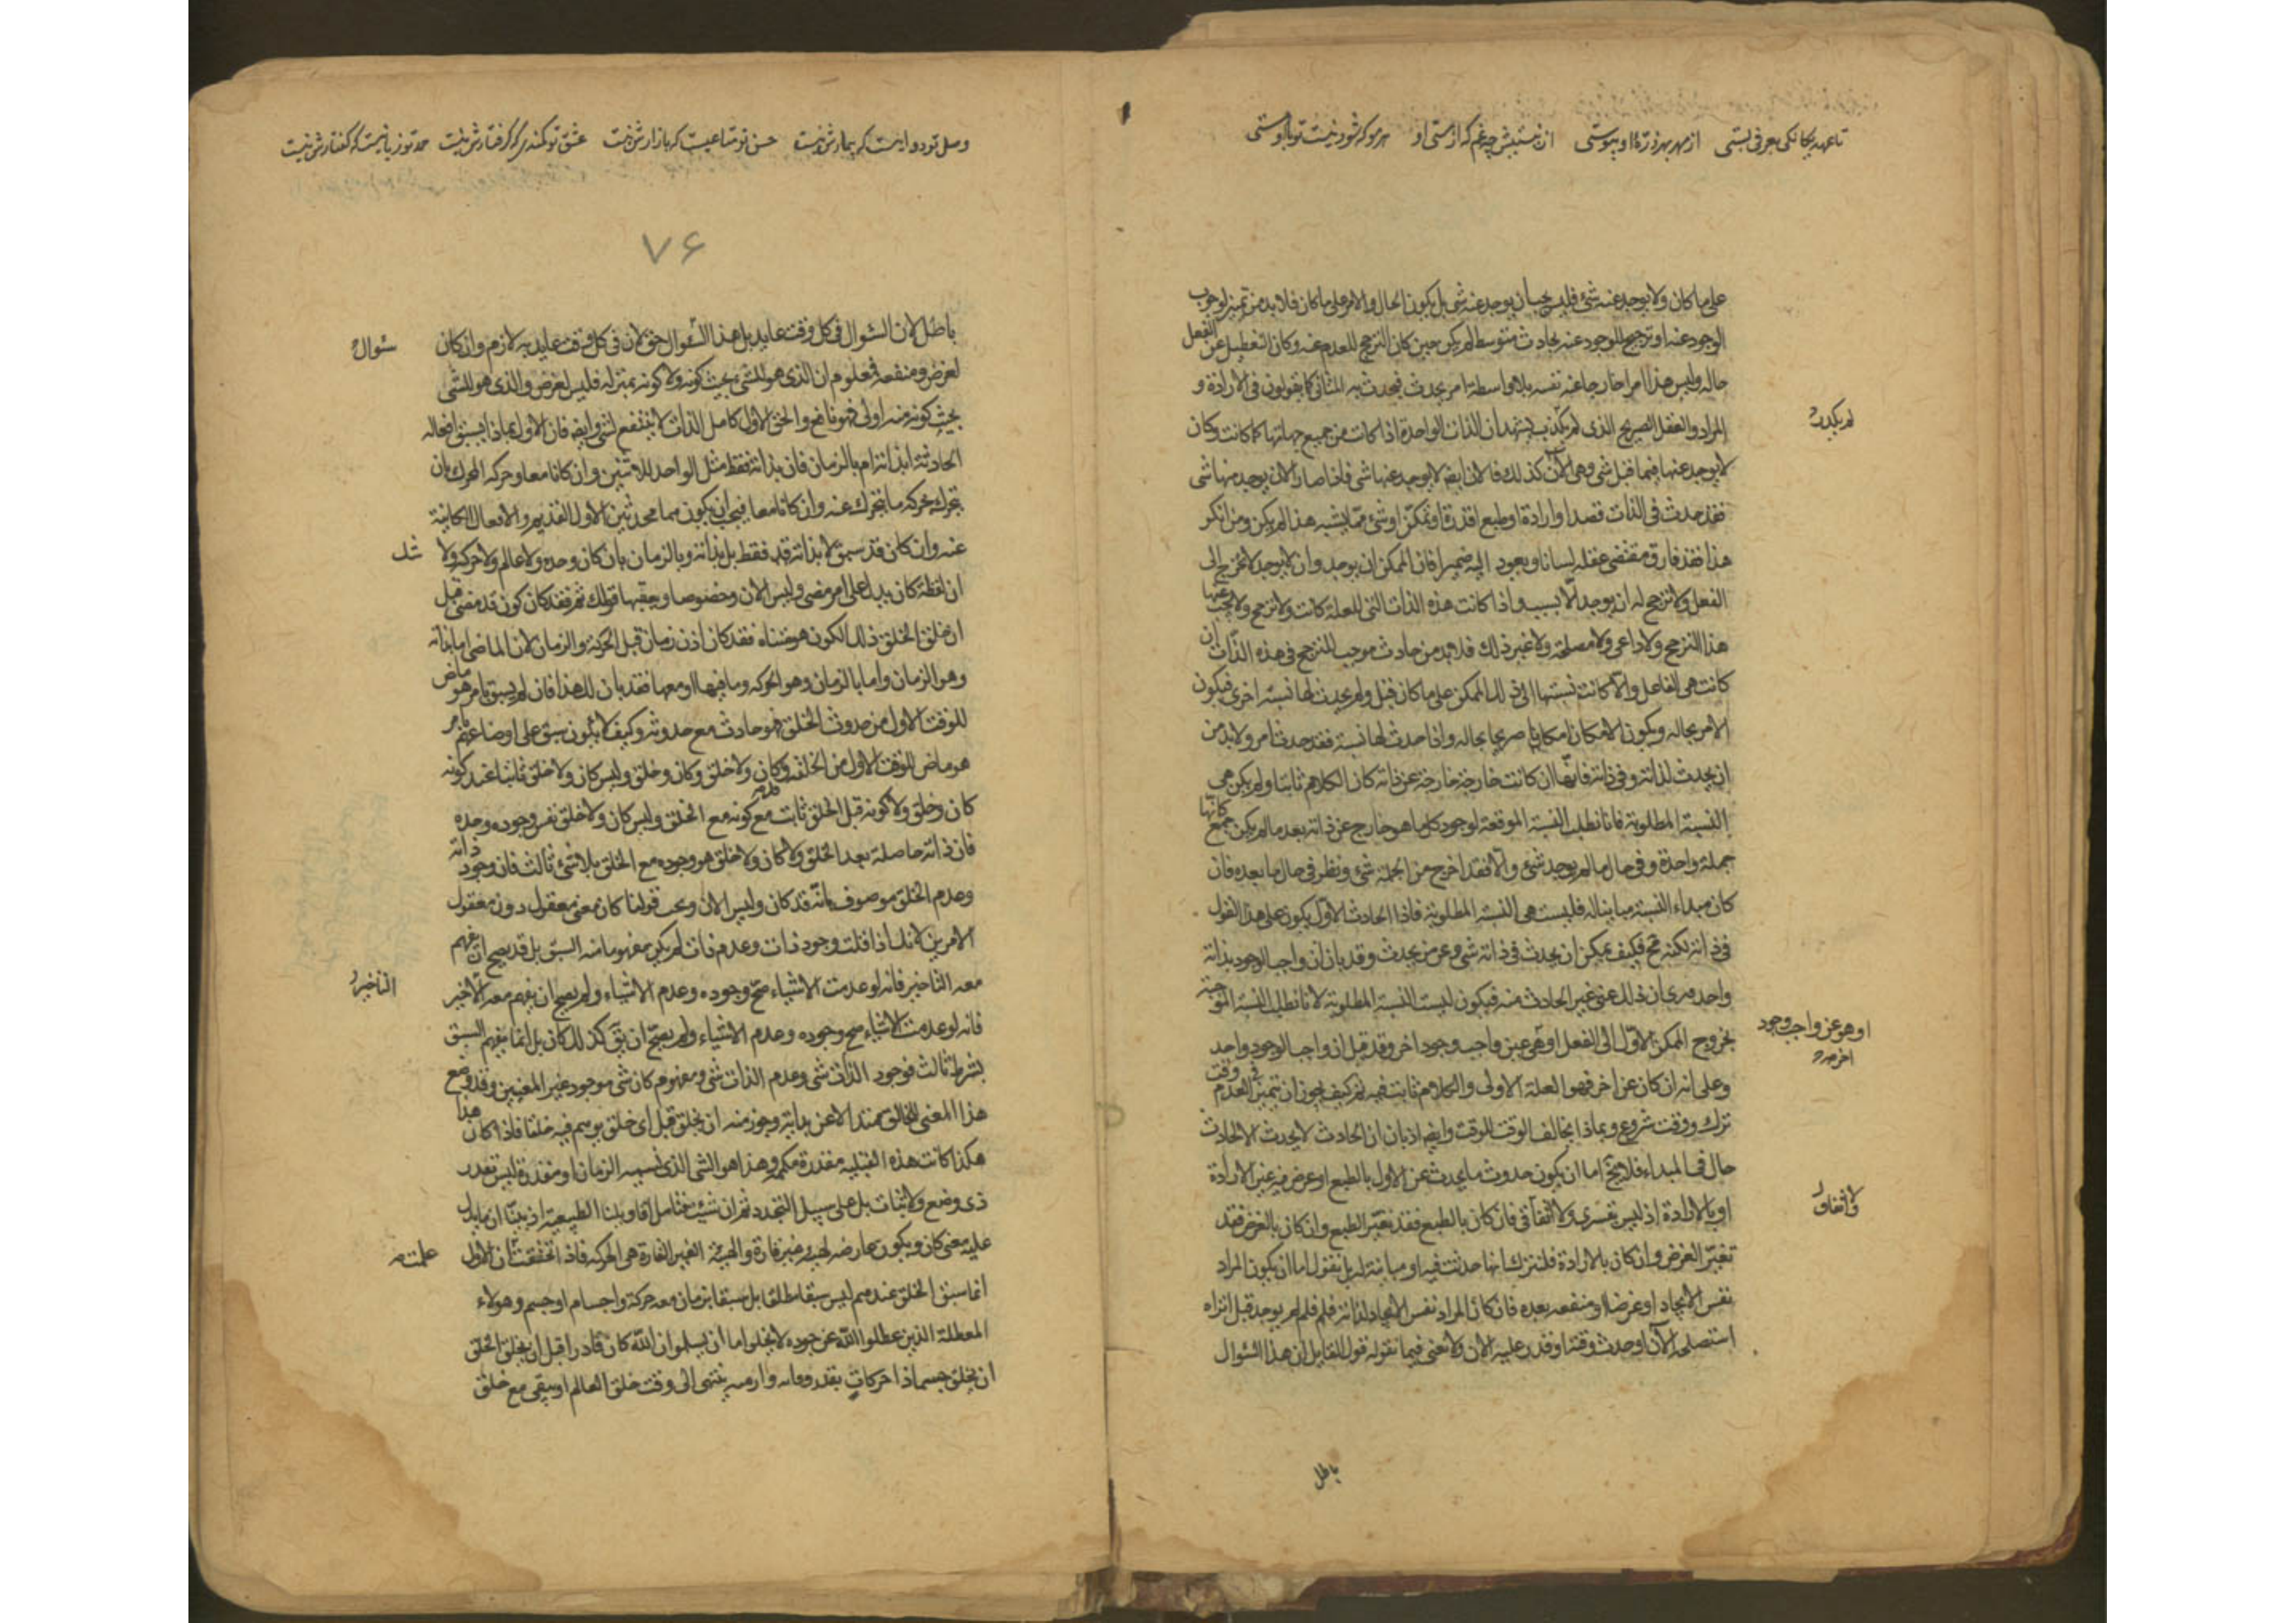 تا عهد یگانگی بعرفی بستی از مهر بهر ذرهٔ او پیوستی از نیستیش چه غم که از هستی او هر مو که شود نیست تو با او هستی
على ما كان ولا يوجد عنه شئ فليس يجب ان يوجد عنه شئ بل يكون الحال والامر على ما كان فلا بد من تميز لوجوب
الوجود عنه او ترجيح للوجود عنه بحادث متوسط لم يكن حين كان الترجح للعدم عنه وكان التعطيل عن الفعل
حاله وليس هذا امرا خارجا عنه نفسه بلا واسطة امر يحدث فيحدث به الثانى كما يقولون فى الارادة و
المراد والعقل الصريح الذى لم يكذب يشهد ان الذات الواحدة اذا كانت من جميع جهاتها كما كانت وكان
لم يكدر
لا يوجد عنها فيما قبل شئ وهى الآن كذلك فالان ايضا لا يوجد عنها شئ فاذا صار الان يوجد منها شئ
فقد حدث فى الذات قصد او ارادة او طبع او قدرة او تمكن او شئ مما يشبه هذا لم يكن ومن انكر
هذا فقد فارق مقتضى عقله لسانا ويعود اليه ضميرا فان الممكن ان يوجد وان لا يوجد لا يخرج الى
الفعل ولا يترجح له ان يوجد الا بسبب واذا كانت هذه الذات التى للعلة كانت ولا ترجح ولا يجب عنها
هذا الترجح ولا داعى ولا مصلحة ولا غير ذلك فلا بد من حادث موجب للترجح فى هذه الذات ان
كانت هى الفاعل والا كانت نسبتها الى ذلك الممكن على ما كان قبل ولم يحدث لها نسبة اخرى فيكون
الامر بحاله ويكون الامكان امكانا صريحا بحاله واذا حدث لها نسبة فقد حدث امر ولا بد من
ان يحدث لذاته وفى ذاته فانها ان كانت خارجة خارجة عن ذاته كان الكلام ثابتا ولم يكن هى
النسبة المطلوبة فانا نطلب النسبة الموقعة لوجود كل ما هو خارج عن ذاته بعد ما لم يكن جمع كانها
جملة واحدة وفى حال ما لم يوجد شئ والا فقد اخرج من الجملة شئ ونظر فى حال ما بعده فان
كان مبداء النسبة مباينا له فليست هى النسبة المطلوبة فاذا الحادث الاول يكون على هذا القول
فى ذاته لكنه مح فكيف يمكن ان يحدث فى ذاته شئ وعن من يحدث وقد بان ان واجب الوجود بذاته
واحد فترى ان ذلك عن غير الحادث منه فيكون ليست النسبة المطلوبة لانا نطلب النسبة الموجبة
لخروج الممكن الاول الى الفعل او هى عن واجب وجود اخر وقد قيل ان واجب الوجود واحد
او هو عن واجب وجود
اخر
وعلى انه ان كان عن اخر فهو العلة الاولى والكلام ثابت فيه ثم كيف يجوز ان يتميز فى العدم وقت
ترك ووقت شروع وبماذا يخالف الوقت الوقت وايضا اذ بان ان الحادث لا يحدث الا بحادث
حال فى المبداء فلا يخ اما ان يكون حدوث ما يحدث عن الاول بالطبع او عرض فيه غير الارادة
او بالارادة اذ ليس بقسرى ولا اتفاقى فان كان بالطبع فقد تغير الطبع وان كان بالعرض فقد
ولا اتفاق
تغير العرض وان كان بالارادة فلنترك انها حدثت فيه او مباينة له بل نقول اما ان يكون المراد
نفس الايجاد او غرضا او منفعة بعده فان كان المراد نفس الايجاد لذاته فلم لم يوجد قبل اتراه
استصلحه الآن او حدث وقته او قدر عليه الان ولا نعنى فيما نقوله قول القايل ان هذا السؤال
باطل
وصل تو دوا ایست که بیمارش نیست حسن تو متاعیست که بازارش نیست عشق تو کمندی که گرفتارش نیست حمد تو زبانیست که گفتارش نیست
۷۶
باطل لان السؤال فى كل وقت عايد بل هذا السؤال حق لان فى كل وقت عايد به لازم وان كان
سؤال
لغرض ومنفعة فمعلوم ان الذى هو للشئ بحيث كونه ولا كونه بمنزلة فليس لغرض والذى هو للشئ
بحيث كونه منه اولى فهو نافع والحق الاول كامل الذات لا ينتفع بشئ وايضا فان الاول بماذا يسبق افعاله
الحادثة ابذاته ام بالزمان فان بذاته فقط مثل الواحد للاثنين وان كانا معا وحركة المحرك بان
يتحرك بحركة ما يتحرك عنه وان كانا معا فيجب ان يكون هما محدثين الاول القديم والافعال الكاينة
عنه وان كان قد سبق لا بذاته فقط بل بذاته وبالزمان بان كان وحده ولا عالم ولا حركة ولا
شك
ان لفظة كان يدل على امر مضى وليس الان وخصوصا ويعقبها قولك ثم فقد كان كون قد مضى قبل
ان خلق الخلق ذلك الكون هو متناه فقد كان اذن زمان قبل الحركة والزمان لان الماضى اما بذاته
وهو الزمان واما بالزمان وهو الحركة وما فيها او معها فقد بان لك هذا فان لم يسبق بامر هو ماض
للوقت الاول من حدوث الخلق فهو حادث مع حدوثه وكيف لا يكون سبق على اوضاعهم بامر
هو ماض للوقت الاول من الخلقة وكان ولا خلق وكان وخلق وليس كان ولا خلق ثابتا عند كونه
كان وخلق ولا كونه قبل الخلق ثابت مع كونه مع الخلق وليس كان ولا خلق نفس وجوده وحده
فان ذاته حاصلة بعد الخلق ولا كان ولا خلق هو وجوده مع الخلق بلا شئ ثالث فان وجود ذاته
وعدم الخلق موصوف بانه قد كان وليس الان وتحت قولنا كان معنى معقول دون معقول
الامرين لانك اذا قلت وجود ذات وعدم ذات لم يكن مفهوما منه السبق بل قد يصح ان يفهم
معه التاخير فانه لو عدمت الاشياء صح وجوده وعدم الاشياء ولم يصح ان يفهم معه الاخير
التاخير
فانه لو عدمت الاشياء صح وجوده وعدم الاشياء ولم يصح ان يق كذلك كان بل انما يفهم السبق
بشرط ثالث فوجود الذات شئ وعدم الذات شئ ومفهوم كان شئ موجود غير المعنيين وقد وضع
هذا المعنى للخالق ممتدا لا عن بداية وجوز منه ان يخلق قبل اى خلق يوسم فيه خلقا فاذا كان هذا
هكذا كانت هذه القبلية مقدرة مكممة وهذا هو الشئ الذى نسميه الزمان او مقدرة ليس تقدر
ذى وضع ولا ثبات بل على سبيل التجدد ثم ان شئت فتامل اقاويلنا الطبيعية اذ بينا ان ما يدل
عليه معنى كان ويكون عارض لهيئة غير قارة والهيئة الغير القارة هى الحركة فاذا تحققت ان الاول
علمت
انما سبق الخلق عندهم ليس سبقا مطلقا بل سبقا بزمان معه حركة واجسام او جسم وهولاء
المعطلة الذين عطلوا الله عن جوده لا يخلوا اما ان يسلموا ان الله كان قادرا قبل ان يخلق الخلق
ان يخلق جسما ذا حركات بقدر اوقات وازمنة ينتهى الى وقت خلق العالم او يبقى مع خلق